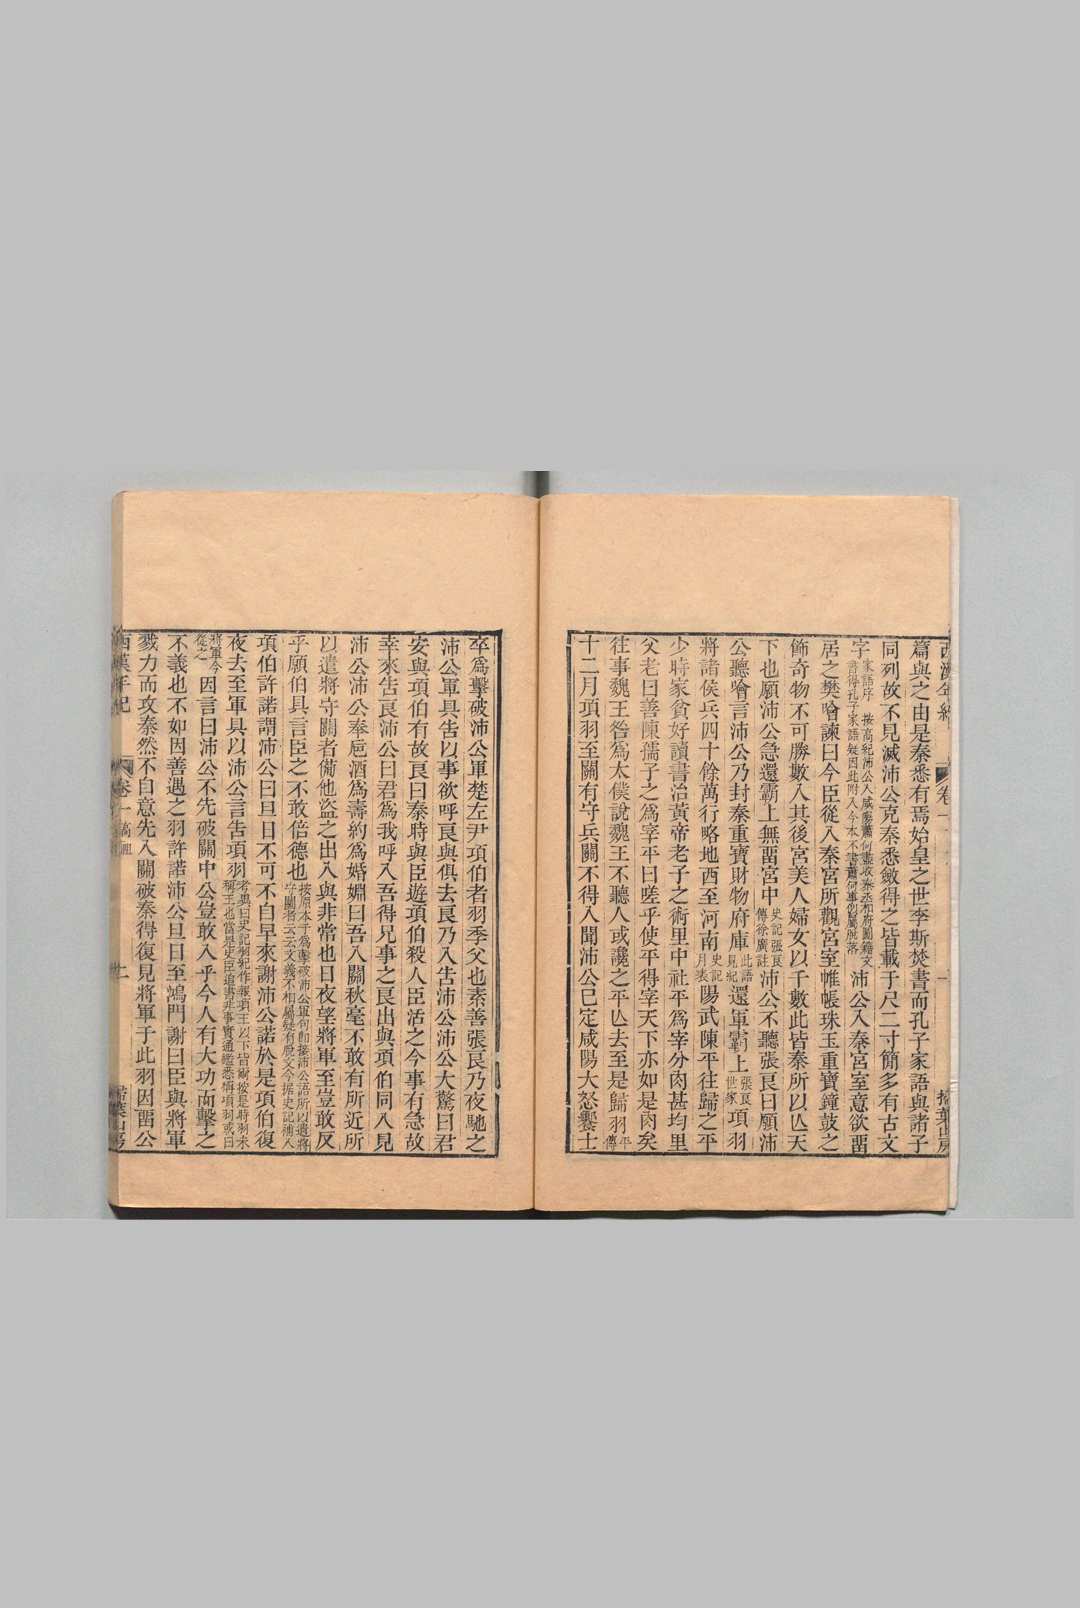 西漢年紀 卷一 一 掃葉山房
篇與之由是秦悉有焉始皇之世李斯焚書而孔子家語與諸子
同列故不見滅沛公克秦悉斂得之皆載于尺二寸簡多有古文
字家語序 按高紀沛公入咸陽蕭何盡收秦丞相府圖籍文書得孔子家語疑因此附入今本不書蕭何事似屬脫落沛公入秦宮室意欲畱
居之樊噲諫曰今臣從入秦宮所觀宮室帷帳珠玉重寶鐘鼓之
飾奇物不可勝數入其後宮美人婦女以千數此皆秦所以亾天
下也願沛公急還霸上無畱宮中史記張良傳徐廣註沛公不聽張良曰願沛
公聽噲言沛公乃封秦重寶財物府庫此語見紀還軍霸上張良世家項羽
將諸侯兵四十餘萬行略地西至河南史記月表陽武陳平往歸之平
少時家貧好讀書治黃帝老子之術里中社平爲宰分肉甚均里
父老曰善陳孺子之爲宰平曰嗟乎使平得宰天下亦如是肉矣
往事魏王咎爲太僕說魏王不聽人或讒之平亾去至是歸羽平傳
十二月項羽至關有守兵關不得入聞沛公已定咸陽大怒饗士
卒爲擊破沛公軍楚左尹項伯者羽季父也素善張良乃夜馳之
沛公軍具告以事欲呼良與俱去良乃入告沛公沛公大驚曰君
安與項伯有故良曰秦時與臣遊項伯殺人臣活之今事有急故
幸來告良沛公曰君爲我呼入吾得兄事之良出與項伯同入見
沛公沛公奉巵酒爲壽約爲婚婣曰吾入關秋毫不敢有所近所
以遣將守關者僃他盜之出入與非常也日夜望將軍至豈敢反
乎願伯具言臣之不敢倍德也按原本于爲擊破沛公軍句卽接沛公語所以遣將守關者云云文義不相屬疑有脫文今据史記補入
項伯許諾謂沛公曰旦日不可不自早來謝沛公諾於是項伯復
夜去至軍具以沛公言告項羽考異曰史記羽紀作報項王以下皆爾按是時羽未稱王也當是史臣追書非事實通鑑悉偁項羽或曰
將軍今從之因言曰沛公不先破關中公豈敢入乎今人有大功而擊之
不義也不如因善遇之羽許諾沛公旦日至鴻門謝曰臣與將軍
戮力而攻秦然不自意先入關破秦得復見將軍于此羽因畱公
西漢年紀 卷一 高祖 二 掃葉山房